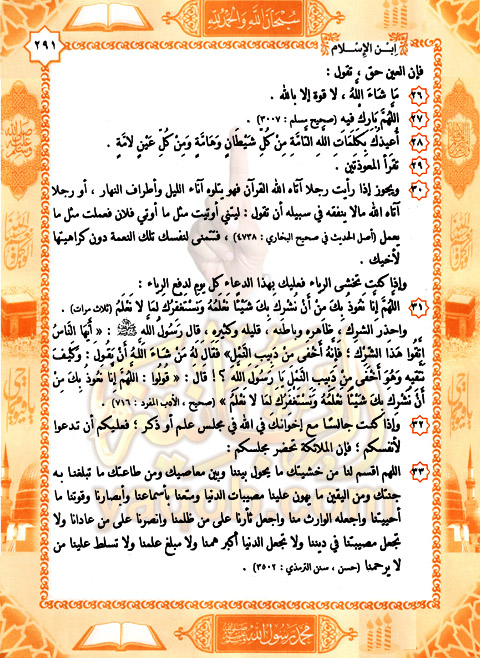 سبحان الله والحمد لله
٢٩١
ابن الإسلام
فإن العين حق ، تقول :
٢٦ مَا شَاءَ اللَّهُ ، لا قوة إلا بالله .
٢٧ اللَّهُمَّ بَارِك فيه (صحيح مسلم : ٣٠٠٧) .
٢٨ أُعِيذُكَ بِكَلِمَاتِ اللَّهِ التَّامَّةِ مِنْ كُلِّ شَيْطَانٍ وَهَامَّةٍ وَمِنْ كُلِّ عَيْنٍ لامَّةٍ .
٢٩ تقرأ المعوذتين .
٣٠ ويجوز إذا رأيت رجلا آتاه الله القرآن فهو يتلوه آناء الليل وأطراف النهار ، أو رجلا
آتاه الله مالا ينفقه في سبيله أن تقول : ليتني أوتيت مثل ما أوتي فلان فعملت مثل ما
يعمل (أصل الحديث في صحيح البخاري : ٤٧٣٨) ، فتتمنى لنفسك تلك النعمة دون كراهيتها
لأخيك .
وإذا كنت تخشى الرياء فعليك بهذا الدعاء كل يوم لدفع الرياء :
٣١ اللَّهُمَّ إِنَّا نَعُوذُ بِكَ مِنْ أَنْ نُشْرِكَ بِكَ شَيْئًا نَعْلَمُهُ وَنَسْتَغْفِرُكَ لِمَا لا نَعْلَمُ (ثلاث مرات) .
واحذر الشرك ، ظاهره وباطنه ، قليله وكثيره ، قال رَسُولُ الله ﷺ : « أَيُّهَا النَّاسُ
اتَّقُوا هَذَا الشِّرْكَ ؛ فَإِنَّهُ أَخْفَى مِنْ دَبِيبِ النَّمْلِ» فَقَالَ لَهُ مَنْ شَاءَ اللَّهُ أَنْ يَقُولَ : وَكَيْفَ
نَتَّقِيهِ وَهُوَ أَخْفَى مِنْ دَبِيبِ النَّمْلِ يَا رَسُولَ اللَّهِ ؟! قال : « قُولُوا : اللَّهُمَّ إِنَّا نَعُوذُ بِكَ مِنْ
أَنْ نُشْرِكَ بِكَ شَيْئًا نَعْلَمُهُ وَنَسْتَغْفِرُكَ لِمَا لا نَعْلَمُ » (صحيح ، الأدب المفرد : ٧١٦) .
٣٢ وإذا كنت جالسًا مع إخوانك في الله في مجلس علم أو ذكر ؛ فعليكم أن تدعوا
لأنفسكم ؛ فإن الملائكة تحضر مجلسكم :
٣٣ اللهم اقسم لنا من خشيتك ما يحول بيننا وبين معاصيك ومن طاعتك ما تبلغنا به
جنتك ومن اليقين ما تهون علينا مصيبات الدنيا ومتعنا بأسماعنا وأبصارنا وقوتنا ما
أحييتنا واجعله الوارث منا واجعل ثأرنا على من ظلمنا وانصرنا على من عادانا ولا
تجعل مصيبتنا في ديننا ولا تجعل الدنيا أكبر همنا ولا مبلغ علمنا ولا تسلط علينا من
لا يرحمنا (حسن ، سنن الترمذي : ٣٥٠٢) .
محمد رسول الله ﷺ